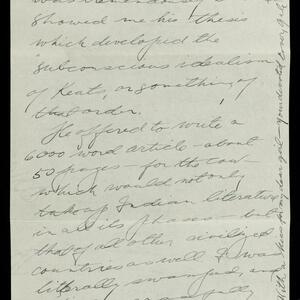 showed me his thesis
which developed the
subconscious idealism
of Keats, or something of
that order.
He offered to write a
6000 word article - about
50 pages - for the
which would not only
take up Indian literature
in all its phases - but
that of all other civilized
countries as well. I was
literally swamped, and
With a kiss for my dear girl - your devoted lover,